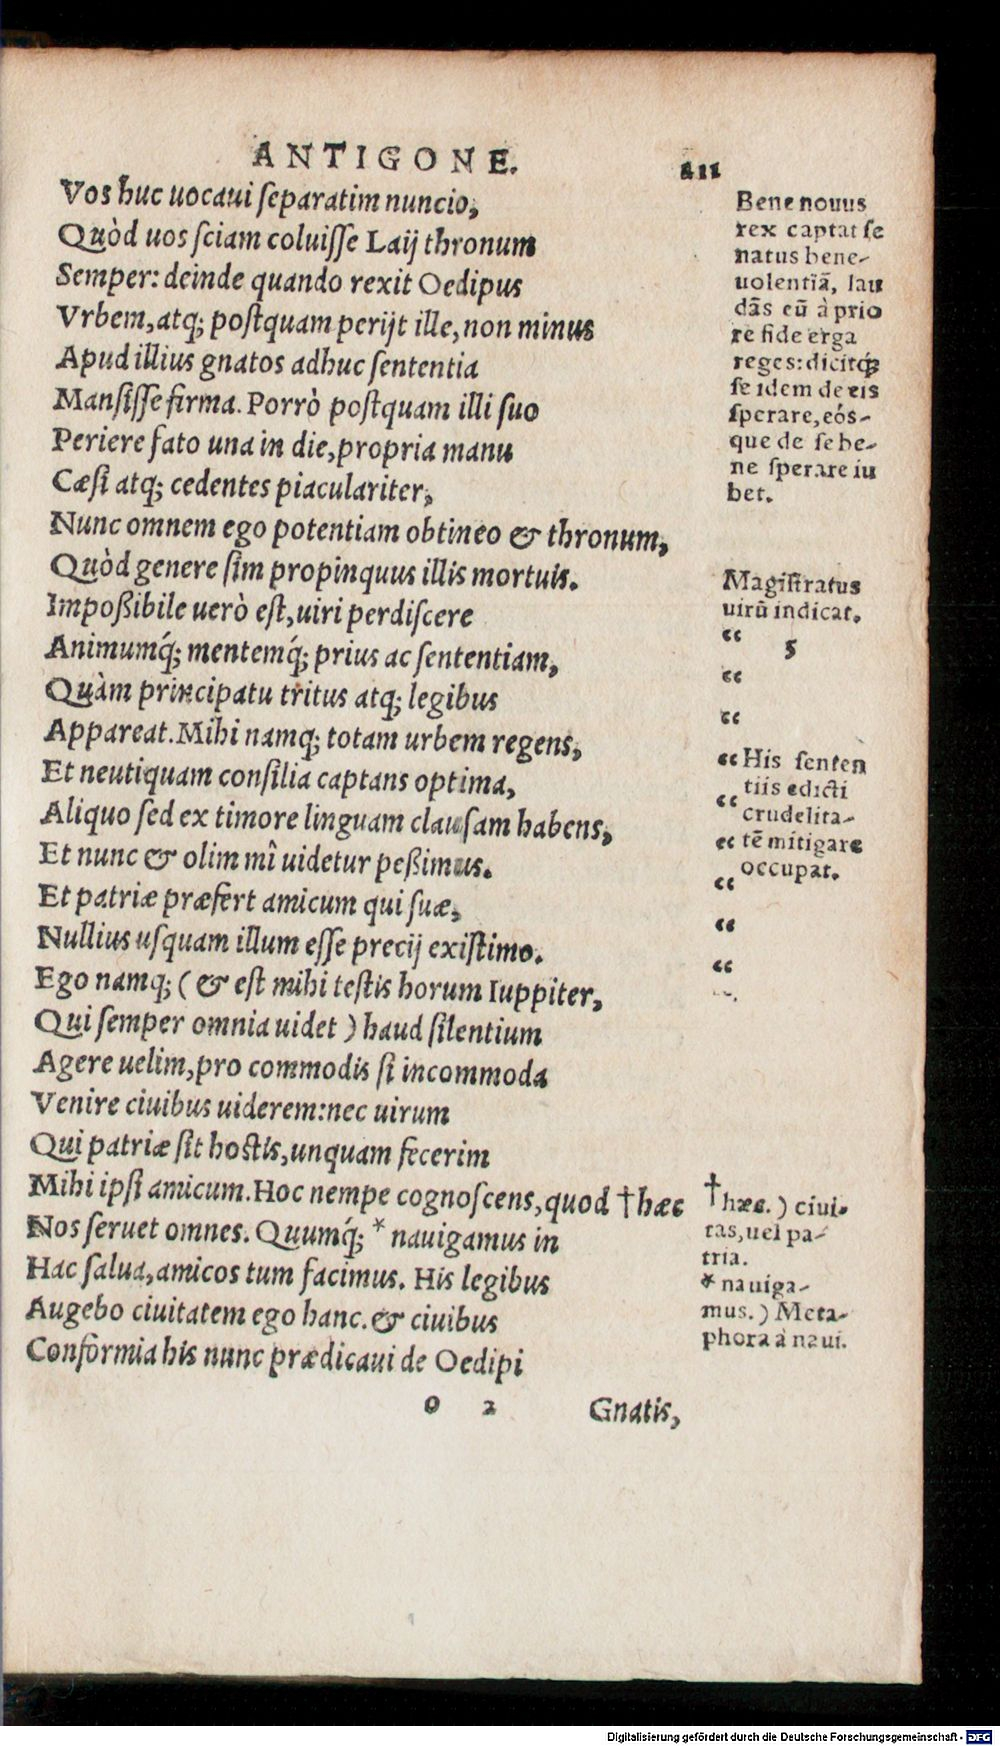 ANTIGONE. 211
Vos huc uocaui ſeparatim nuncio,
Quòd uos ſciam coluiſſe Laij thronum
Semper: deinde quando rexit Oedipus
Vrbem, atq; poſtquam perijt ille, non minus
Apud illius gnatos adhuc ſententia
Manſiſſe firma. Porrò poſtquam illi ſuo
Periere fato una in die, propria manu
Cæſi atq; cedentes piaculariter,
Nunc omnem ego potentiam obtineo & thronum,
Quòd genere ſim propinquus illis mortuis.
Impoßibile uerò eſt, uiri perdiſcere
Animumq́; mentemq́; prius ac ſententiam,
Quàm principatu tritus atq; legibus
Appareat. Mihi namq; totam urbem regens,
Et neutiquam conſilia captans optima,
Aliquo ſed ex timore linguam clauſam habens,
Et nunc & olim mî uidetur peßimus.
Et patriæ præfert amicum qui ſuæ,
Nullius uſquam illum eſſe precij exiſtimo.
Ego namq; ( & eſt mihi teſtis horum Iuppiter,
Qui ſemper omnia uidet ) haud ſilentium
Agere uelim, pro commodis ſi incommoda
Venire ciuibus uiderem: nec uirum
Qui patriæ ſit hoſtis, unquam fecerim
Mihi ipſi amicum. Hoc nempe cognoſcens, quod † hæc
Nos ſeruet omnes. Quumq́; * nauigamus in
Hac ſalua, amicos tum facimus. His legibus
Augebo ciuitatem ego hanc. & ciuibus
Conformia his nunc prædicaui de Oedipi
o 2 Gnatis,
Bene nouus
rex captat ſe
natus bene-
uolentiā, lau
dās eū à prio
re fide erga
reges: dicitq́;
ſe idem de eis
ſperare, eós-
que de ſe be-
ne ſperare iu
bet.
Magiſtratus
uirū indicat.
“ 5
“
“
“ His ſenten
tiis edicti
“ crudelita-
“ tē mitigare
occupat.
“
“
“
† hæc. ) ciui-
tas, uel pa-
tria.
* nauiga-
mus. ) Meta-
phora à naui.
Digitalisierung gefördert durch die Deutsche Forschungsgemeinschaft - DFG